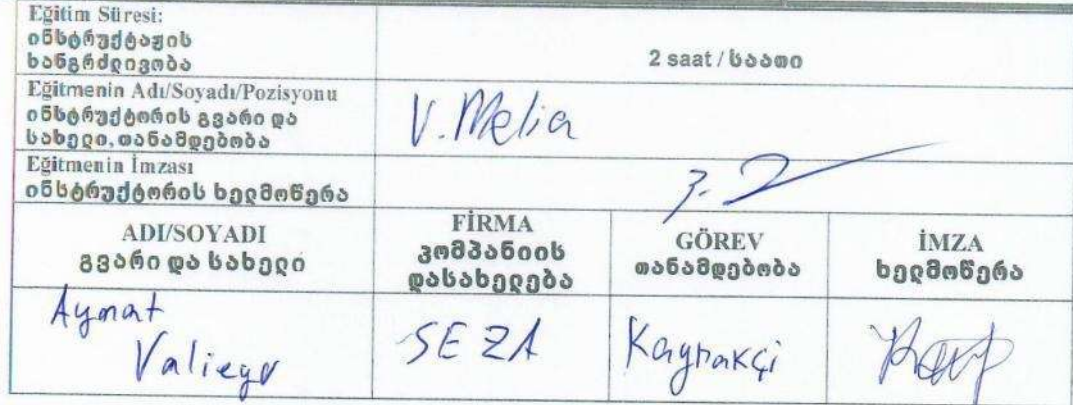 Eğitim Süresi:
ინსტრუქტაჟის
ხანგრძლივობა
2 saat / საათი
Eğitmenin Adı/Soyadı/Pozisyonu
ინსტრუქტორის გვარი და
სახელი, თანამდებობა
V. Melia
Eğitmenin İmzası
ინსტრუქტორის ხელმოწერა
ADI/SOYADI
გვარი და სახელი
FİRMA
კომპანიის
დასახელება
GÖREV
თანამდებობა
İMZA
ხელმოწერა
Aymat
Valiegv
SEZA
Kaynakçi